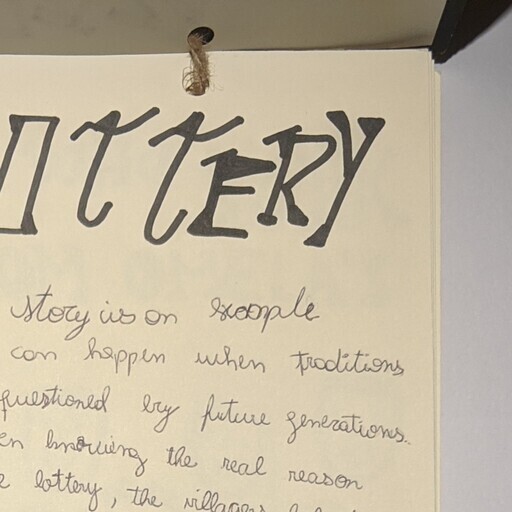 OTTERY
story is an example
can happen when traditions
questioned by future generations.
en knowing the real reason
e lottery, the villagers